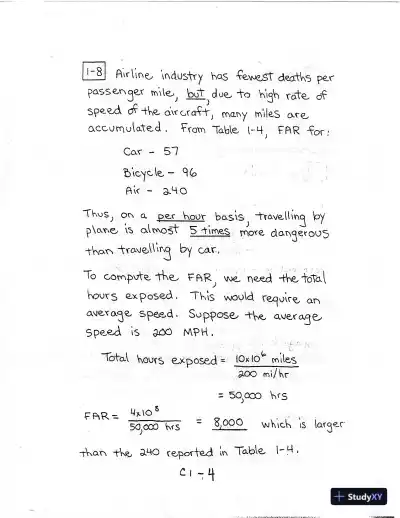 1-8 Airline industry has fewest deaths per
passenger mile, but, due to high rate of
speed of the aircraft, many miles are
accumulated. From Table 1-4, FAR for:
Car - 57
Bicycle - 96
Air - 240
Thus, on a per hour basis, travelling by
plane is almost 5 times more dangerous
than travelling by car.
To compute the FAR, we need the total
hours exposed. This would require an
average speed. Suppose the average
speed is 200 MPH.
Total hours exposed = 10x10⁶ miles
200 mi/hr
= 50,000 hrs
FAR = 4x10⁸
50,000 hrs = 8,000 which is larger
than the 240 reported in Table 1-4.
C1-4
StudyXY